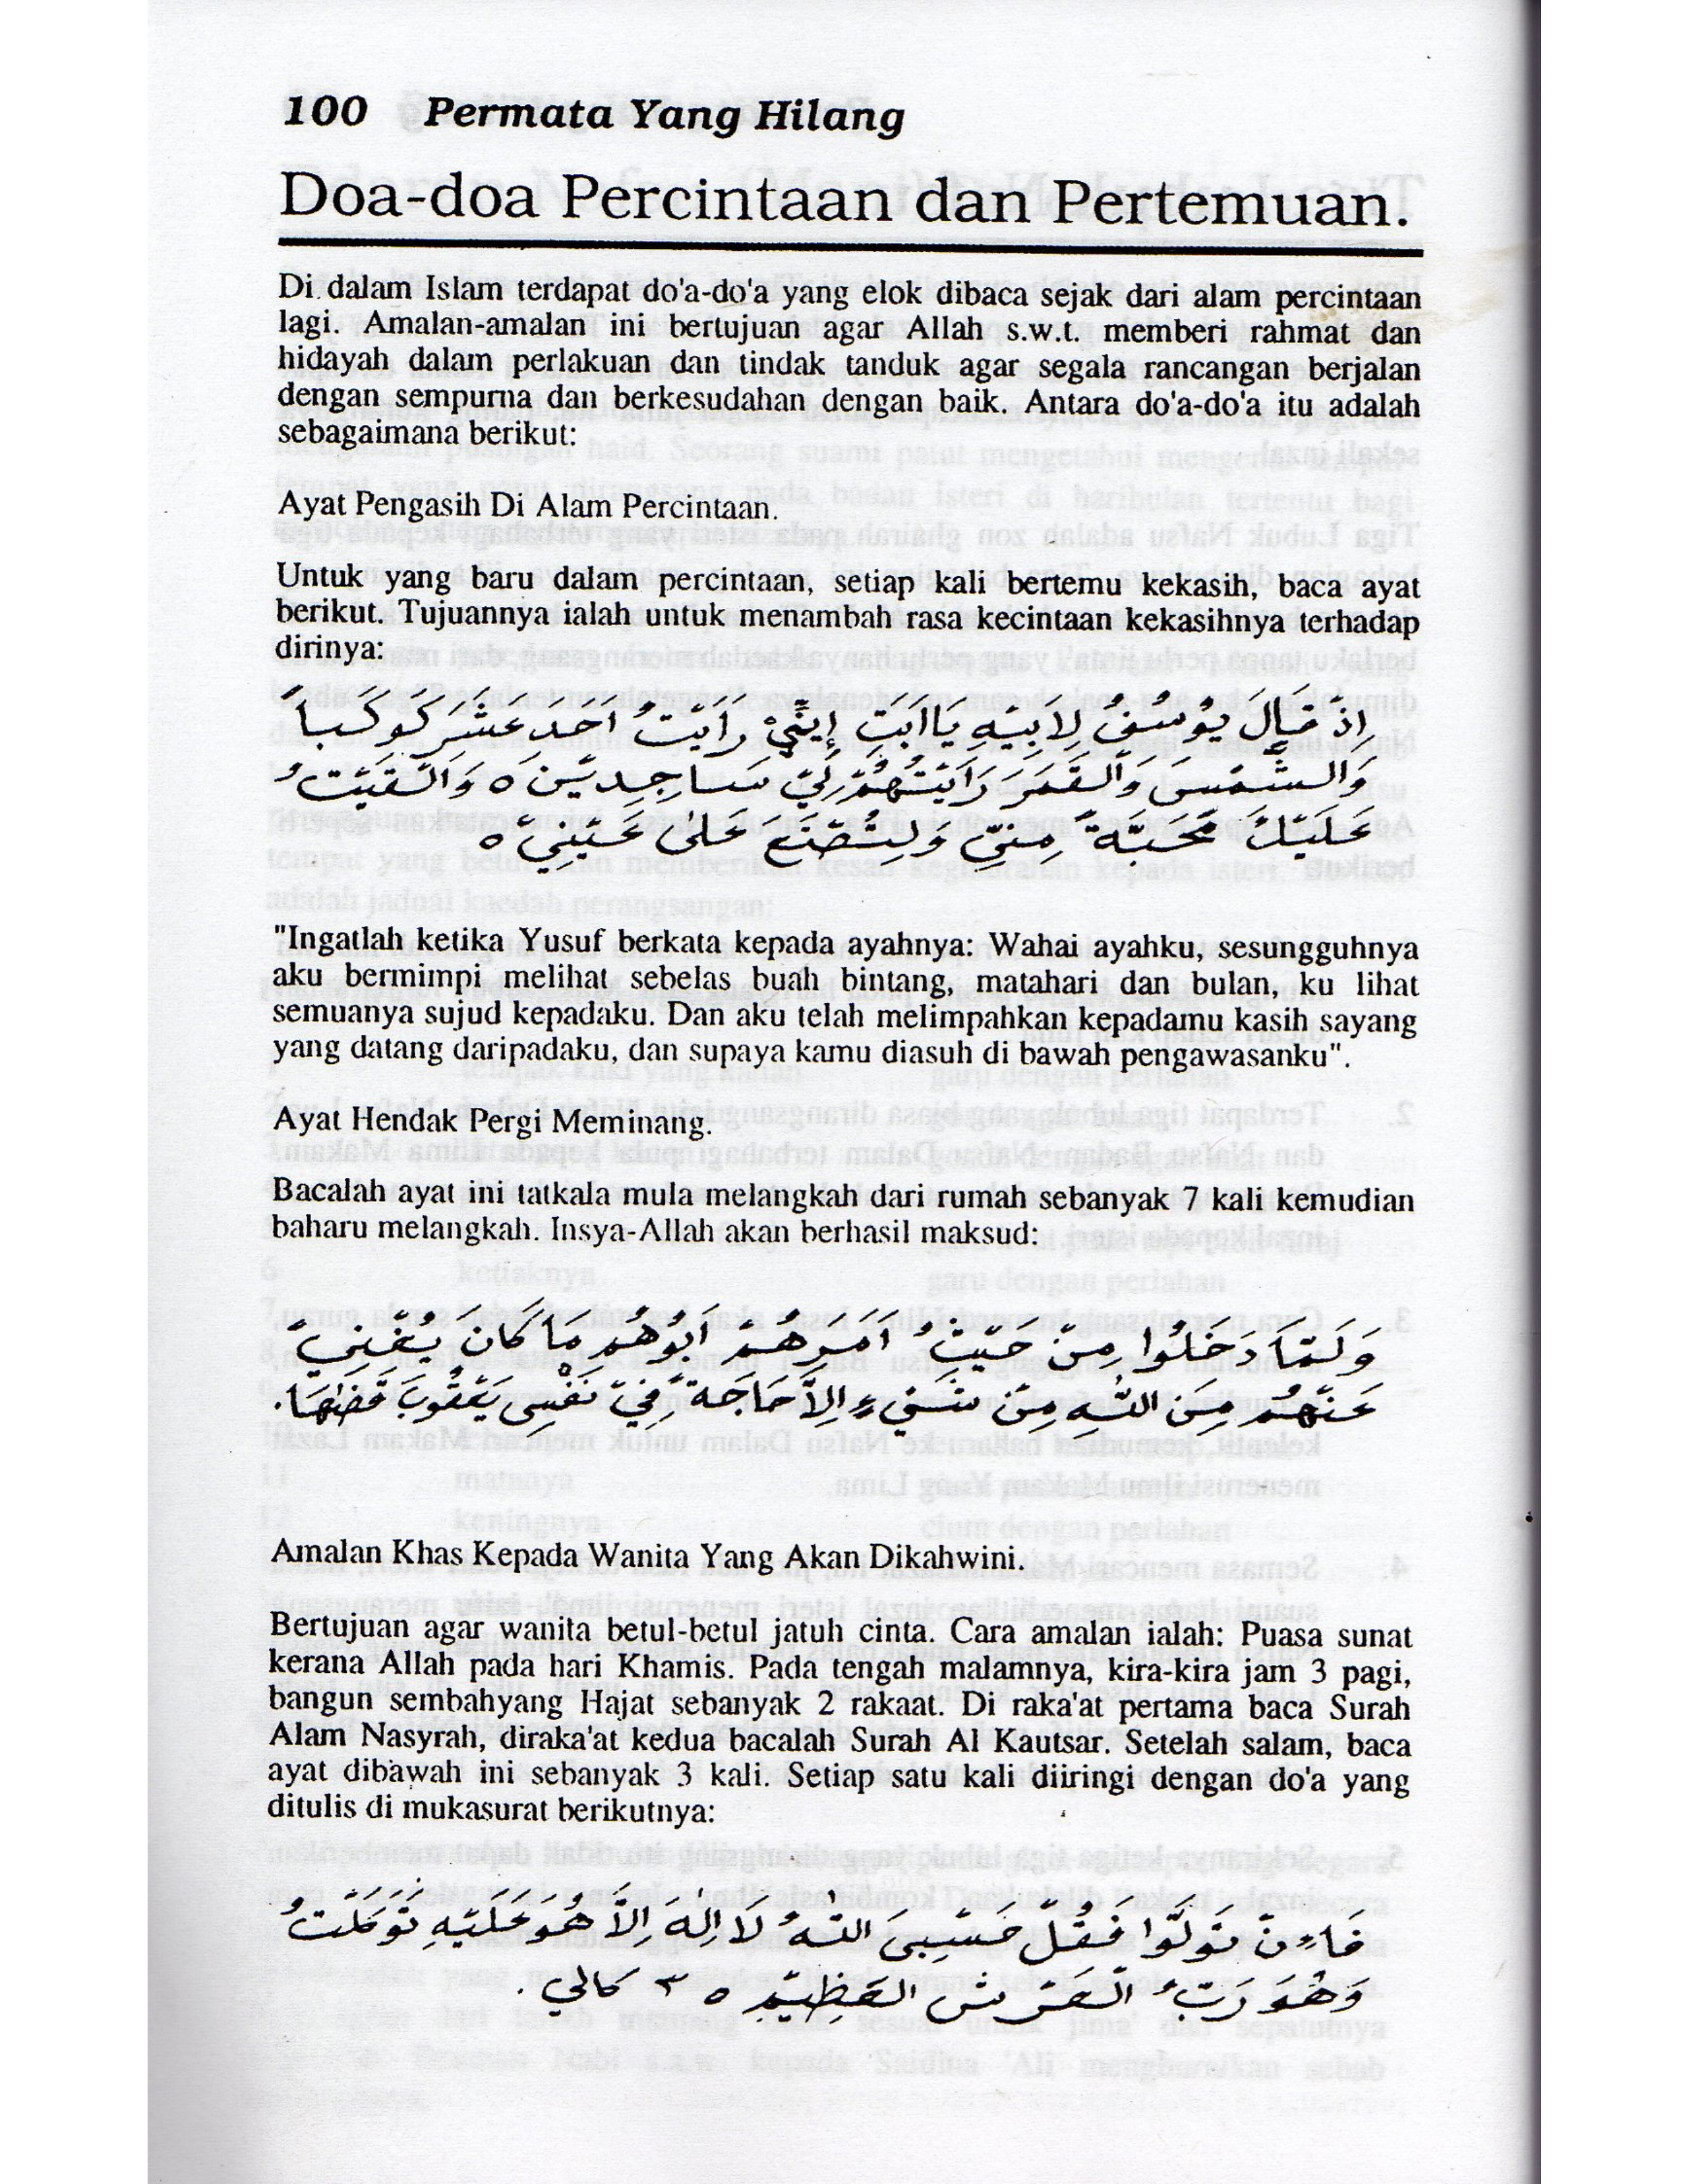 100 Permata Yang Hilang
Doa-doa Percintaan dan Pertemuan.
Di dalam Islam terdapat do'a-do'a yang elok dibaca sejak dari alam percintaan
lagi. Amalan-amalan ini bertujuan agar Allah s.w.t. memberi rahmat dan
hidayah dalam perlakuan dan tindak tanduk agar segala rancangan berjalan
dengan sempurna dan berkesudahan dengan baik. Antara do'a-do'a itu adalah
sebagaimana berikut:
Ayat Pengasih Di Alam Percintaan.
Untuk yang baru dalam percintaan, setiap kali bertemu kekasih, baca ayat
berikut. Tujuannya ialah untuk menambah rasa kecintaan kekasihnya terhadap
dirinya:
اِذْ قَالَ يُوْسُفُ لِاَبِيْهِ يَااَبَتِ إِنِّيْ رَاَيْتُ اَحَدَ عَشَرَ كَوْكَباً
وَالشَّمْسَ وَالْقَمَرَ رَاَيْتُهُمْ لِيْ سَاجِدِيْنَ ٥ وَاَلْقَيْتُ
عَلَيْكَ مَحَبَّةً مِنِّيْ وَلِتُصْنَعَ عَلٰى عَيْنِيْ ٥
"Ingatlah ketika Yusuf berkata kepada ayahnya: Wahai ayahku, sesungguhnya
aku bermimpi melihat sebelas buah bintang, matahari dan bulan, ku lihat
semuanya sujud kepadaku. Dan aku telah melimpahkan kepadamu kasih sayang
yang datang daripadaku, dan supaya kamu diasuh di bawah pengawasanku".
Ayat Hendak Pergi Meminang.
Bacalah ayat ini tatkala mula melangkah dari rumah sebanyak 7 kali kemudian
baharu melangkah. Insya-Allah akan berhasil maksud:
وَلَمَّا دَخَلُوا مِنْ حَيْثُ اَمَرَهُمْ اَبُوْهُمْ مَا كَانَ يُغْنِيْ
عَنْهُمْ مِنَ اللّٰهِ مِنْ شَيْءٍ اِلاَّ حَاجَةً فِيْ نَفْسِ يَعْقُوبَ قَضٰهَا.
Amalan Khas Kepada Wanita Yang Akan Dikahwini.
Bertujuan agar wanita betul-betul jatuh cinta. Cara amalan ialah: Puasa sunat
kerana Allah pada hari Khamis. Pada tengah malamnya, kira-kira jam 3 pagi,
bangun sembahyang Hajat sebanyak 2 rakaat. Di raka'at pertama baca Surah
Alam Nasyrah, diraka'at kedua bacalah Surah Al Kautsar. Setelah salam, baca
ayat dibawah ini sebanyak 3 kali. Setiap satu kali diiringi dengan do'a yang
ditulis di mukasurat berikutnya:
فَاِنْ تَوَلَّوْا فَقُلْ حَسْبِىَ اللّٰهُ لَا اِلٰهَ اِلاَّ هُوَ عَلَيْهِ تَوَكَّلْتُ
وَهُوَ رَبُّ الْعَرْشِ الْعَظِيْمِ ٥ ٣ كالي .